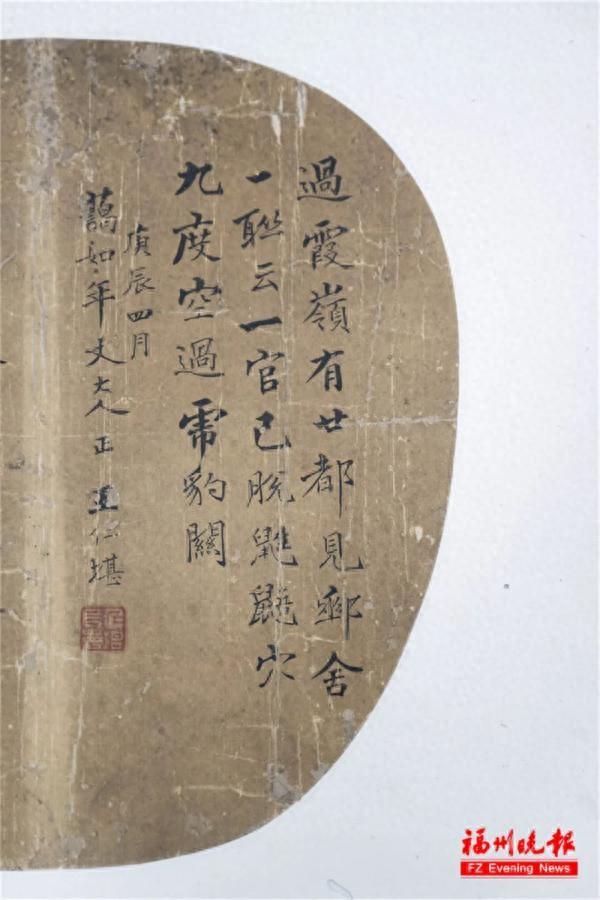 過霞嶺有廿都見郵舍
一聯云一官已脫鼪鼯穴
九度空過虎豹關
庚辰四月
藹如年丈大人正 王仁堪
福州晚報
FZ Evening News